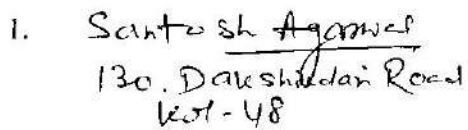 1. Santosh Agarwal
130, Dakshindari Road
Kol-48